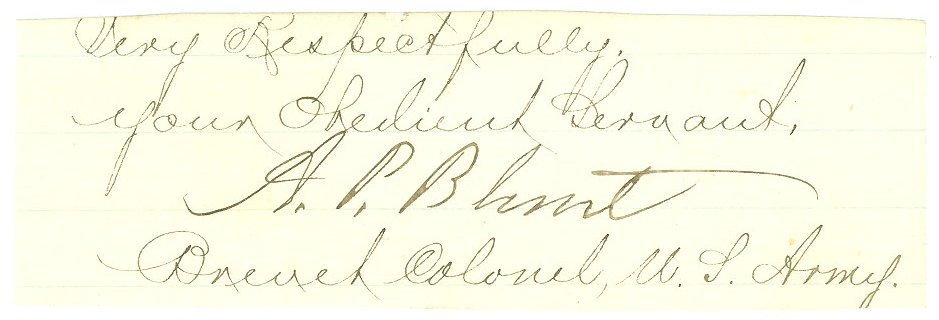 Very Respectfully,
your Obedient Servant,
A. P. Blunt
Brevet Colonel, U. S. Army.